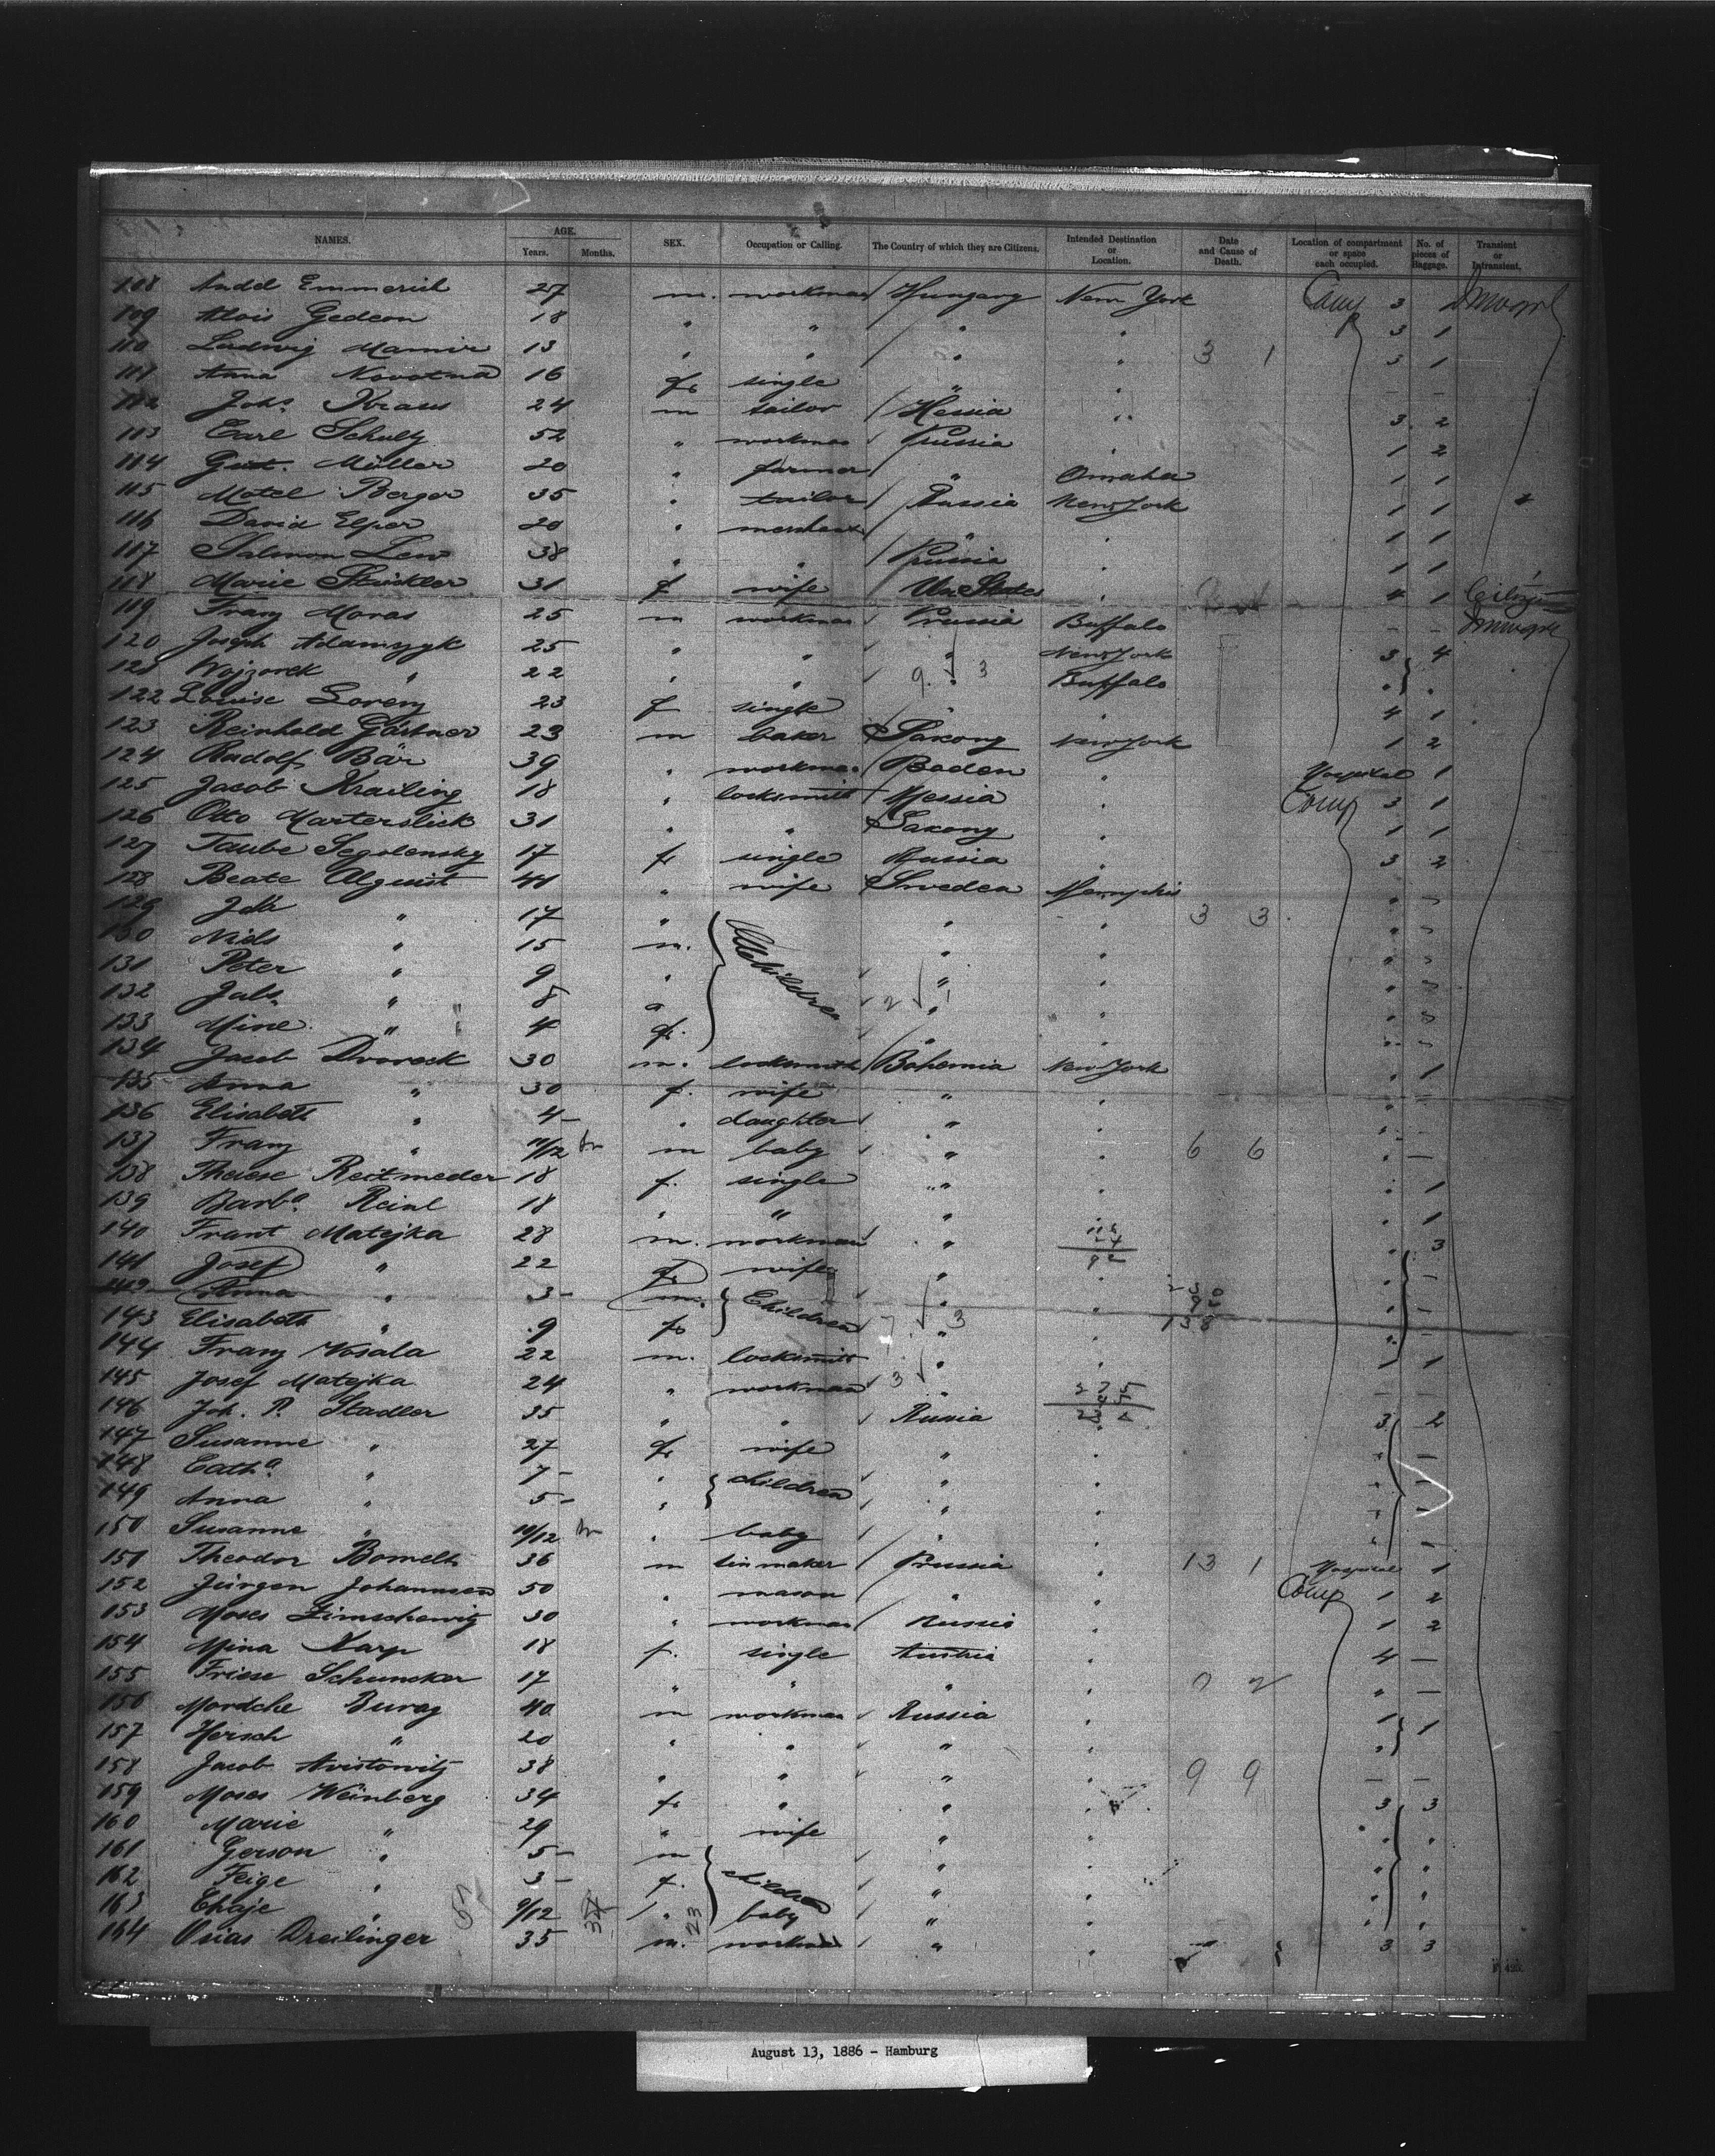 NAMES. AGE. Years. Months. SEX. Occupation or Calling. The Country of which they are Citizens. Intended Destination or Location. Date and Cause of Death. Location of compartment or space each occupied. No. of pieces of Baggage. Transient or Intransient.
108 Emmerich 27 m. workman Hungary New York Comp 3
109 Alois Gedeon 18 " " " " 3 1
110 Ludwig 13 " " " " 3 1 3 1
111 Anna Novotna 16 f. single " "
112 Johs Kraus 24 m tailor Hessia " 3 2
113 Carl Schulz 52 " workman Prussia " 1 2
114 Gust. Müller 20 " farmer " Omaha 1 1
115 Motel Berger 35 " tailor Russia New York 1 1
116 David Elper 20 " merchant " " 1 1
117 Salomon Lew 38 " " Prussia " 1 1
118 Marie Stuckler 31 f wife Un. States " 4 1 Citizen
119 Franz Moras 25 m workman Prussia Buffalo - -
120 Joseph Adamzyk 25 " " " New York 3 4
121 Wojzorek " 22 " " " Buffalo " "
122 Louise Lorenz 23 f single " " 4 1
123 Reinhold Gärtner 23 m baker Saxony New York 1 2
124 Rudolf Bär 39 " workman Baden " Hospital 1
125 Jacob Krailing 18 " locksmith Hessia " Comp 3 1
126 Otto Marterslick 31 " " Saxony " 1 1
127 Taube Segolensky 17 f single Russia " 3 2
128 Beate Alquist 41 " wife Sweden Memphis "
129 Ida " 17 " children " " 3 3 "
130 Nids " 15 m. " " "
131 Peter " 9 " " " "
132 " 8 " " " "
133 Mine " 4 f. " " "
134 Jacob Dvoreck 30 m. locksmith Bohemia New York " 1
135 Anna " 30 f. wife " " " -
136 Elisabeth " 4 - " daughter " " " -
137 Franz " 11/12 m baby " " 6 6 " -
138 Therese Reitmeder 18 f. single " " " 1
139 Barba. Reinl 18 " " " " " 1
140 Frant Matejka 28 m. workman " " 3
141 Josef " 22 f. wife " " " -
142 Anna " 3 - m. Children " " " -
143 Elisabeth " 9 f. " " " -
144 Franz Vosala 22 m. locksmith " " 1
145 Josef Matejka 24 " workman " - -
146 Joh. P. Stadler 35 " " Russia " 3 2
147 Susanne " 27 f. wife " " " -
148 Catha. " 7 - " children " " " -
149 Anna " 5 - " " " " -
150 Susanne " 10/12 " baby " " " -
151 Theodor Bomelh 36 m tin maker Prussia " 13 1 Hospital 1
152 Jürgen Johannsen 50 " mason " " Comp 1 2
153 Moses Zimschewitz 30 " workman Russia " 1 2
154 Mina Karp 18 f. single Austria " 4 -
155 Friese Schuncker 17 " " " " " -
156 Mordche Burag 40 m workman Russia " 1 1
157 Hersch " 20 " " " " "
158 Jacob Aristowitz 38 " " " " 9 9 - -
159 Moses Weinberg 34 f. " " " 3 3
160 Marie " 29 " wife " " " "
161 Gerson " 5 - m children " " " "
162 Feige " 3 - f. " " " "
163 Chaje " 9/12 " baby " " " "
164 Osias Dreilinger 35 m. workman " " 3 3
August 13, 1886 - Hamburg